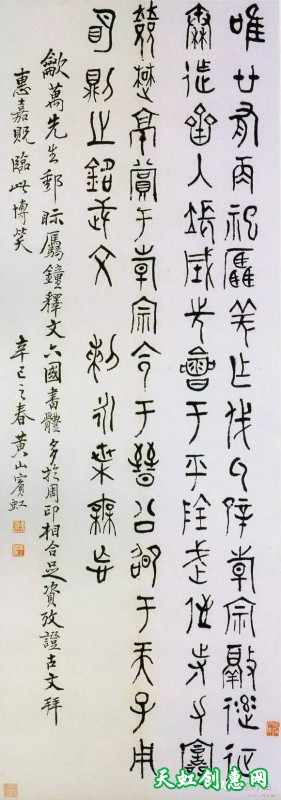 唯廿又再祀驫羌乍戎氒辟韓宗敲逹征
秦迮齊入長城先會于平陰武侄寺力譶
敓楚京賞于韓宗令于晉公卲于天子用
明則之銘武文剌永枼毋忘
歗萬先生郵眎驫鐘釋文六國書體多於周印相合足資攷證古文拜
惠嘉貺臨此博笑
辛巳之春黃山賓虹
天虹创意网